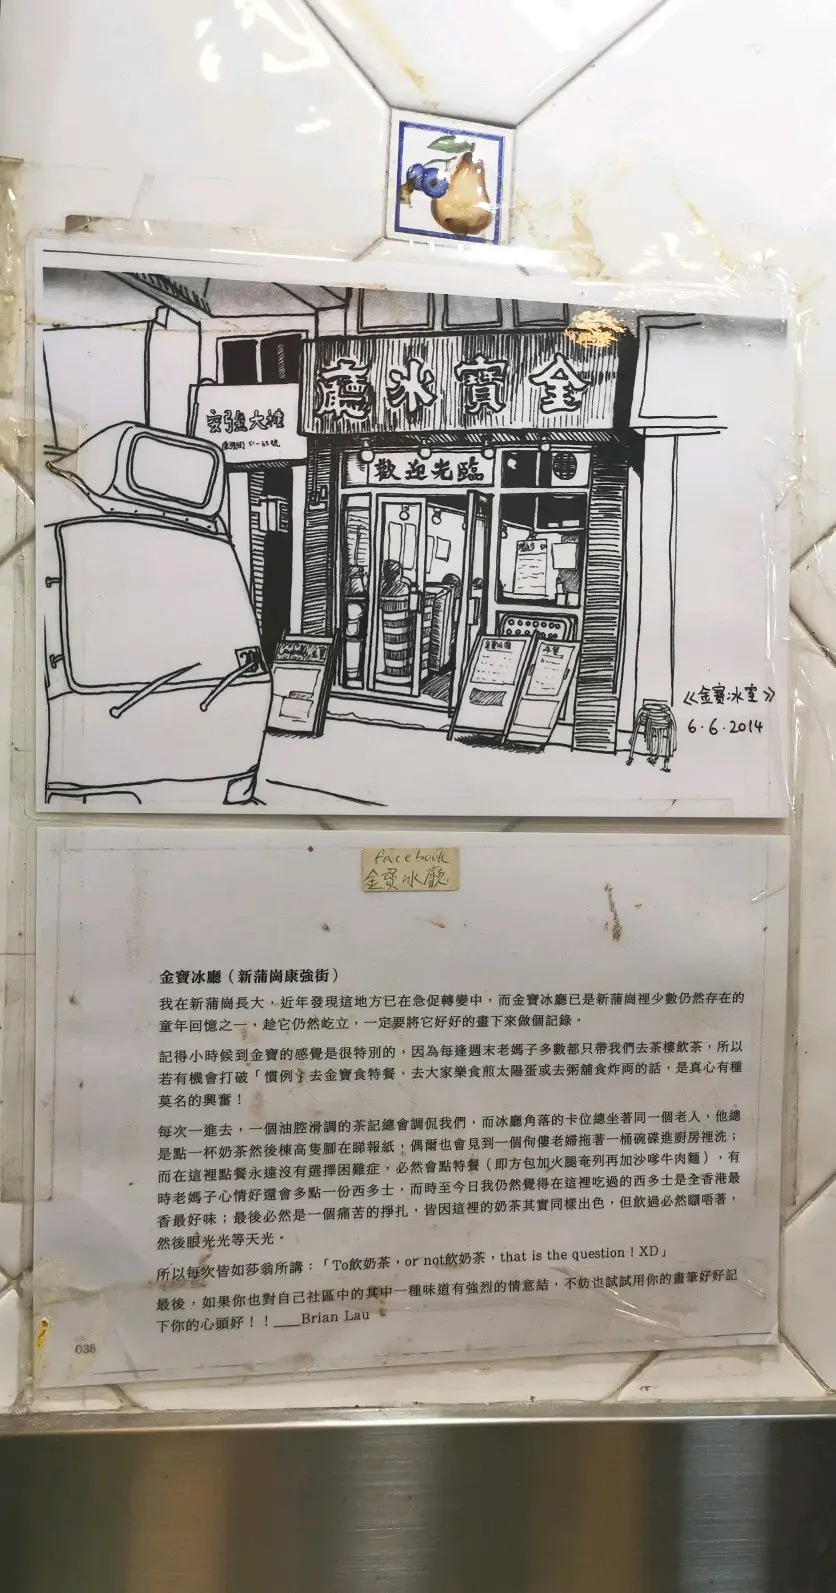 金寶冰廳
安強大樓
康強街 51-65號
歡迎光臨
金寶冰廳
《金寶冰室》
6.6.2014
facebook
金寶冰廳
金寶冰廳（新蒲崗康強街）
我在新蒲崗長大，近年發現這地方已在急促轉變中，而金寶冰廳已是新蒲崗裡少數仍然存在的
童年回憶之一，趁它仍然屹立，一定要將它好好的畫下來做個記錄。
記得小時候到金寶的感覺是很特別的，因為每逢週末老媽子多數都只帶我們去茶樓飲茶，所以
若有機會打破「慣例」去金寶食特餐、去大家樂食煎太陽蛋或去粥舖食炸兩的話，是真心有種
莫名的興奮！
每次一進去，一個油腔滑調的茶記總會調侃我們，而冰廳角落的卡位總坐著同一個老人，他總
是點一杯奶茶然後棟高隻腳在睇報紙，偶爾也會見到一個佝僂老婦拖著一桶碗碟進廚房裡洗；
而在這裡點餐永遠沒有選擇困難症，必然會點特餐（即方包加火腿奄列再加沙嗲牛肉麵），有
時老媽子心情好還會多點一份西多士，而時至今日我仍然覺得在這裡吃過的西多士是全香港最
香最好味；最後必然是一個痛苦的掙扎，皆因這裡的奶茶其實同樣出色，但飲過必然瞓唔著，
然後眼光光等天光。
所以每次皆如莎翁所講：「To飲奶茶，or not飲奶茶，that is the question！XD」
最後，如果你也對自己社區中的其中一種味道有強烈的情意結，不妨也試試用你的畫筆好好記
下你的心頭好！！___Brian Lau
038